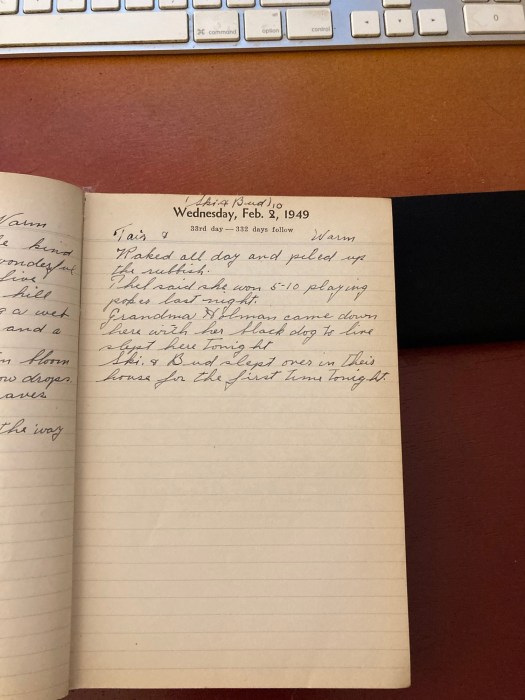 ⌘ command
option
control
0
(Ski & Bud) 10
Wednesday, Feb. 2, 1949
33rd day — 332 days follow
Fair & Warm
Raked all day and piled up
the rubbish.
Thel said she won 5-10 playing
poker last night.
Grandma Holman came down
here with her black dog to live
slept here tonight
Ski. & Bud slept over in their
house for the first time tonight.
Warm
kind
wonderful
live
hill
a wet
and a
in bloom
ow drops.
aves
the way